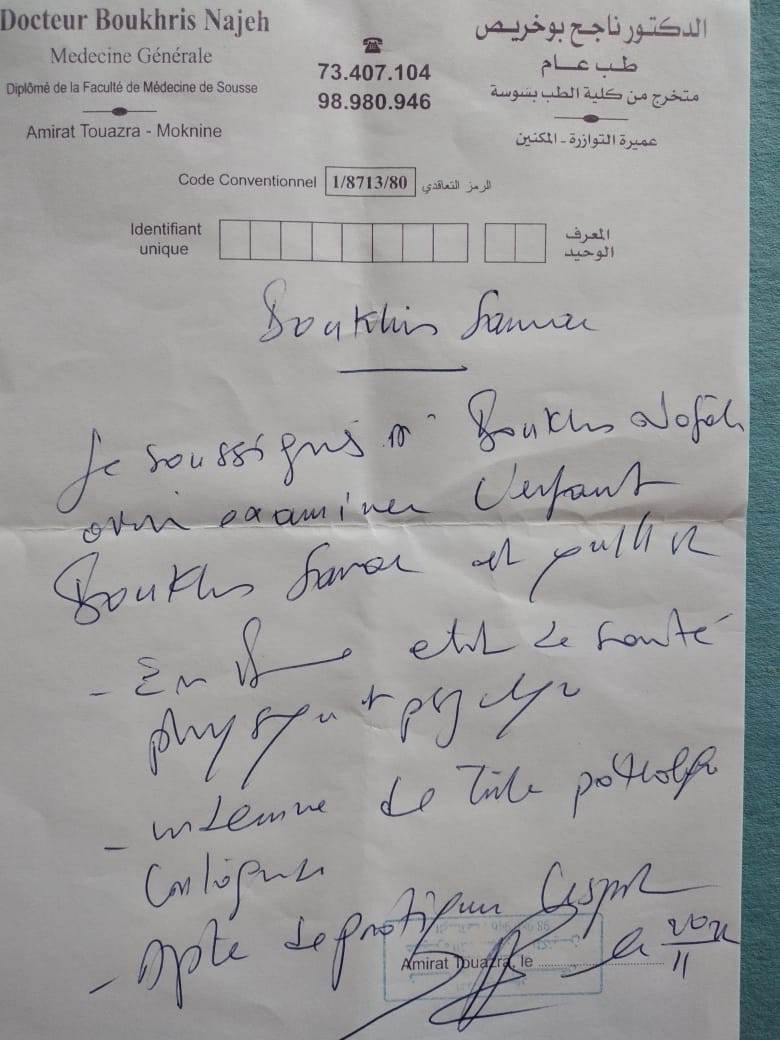 Docteur Boukhris Najeh
Medecine Générale
Diplômé de la Faculté de Médecine de Sousse
Amirat Touazra - Moknine
73.407.104
98.980.946
الدكتور ناجح بوخريص
طب عام
متخرج من كلية الطب بسوسة
عميرة التوازرة - المكنين
Code Conventionnel 1/8713/80 الرمز التعاقدي
Identifiant unique
المعرف الوحيد
Boukhris
Je soussigné Dr Boukhris Najeh
avoir examiner l'enfant
Boukhris et
- En état de santé
physique et psychique
- indemne de toute pathologie
contagieuse
- Apte de pratiquer
Amirat Touazra, le